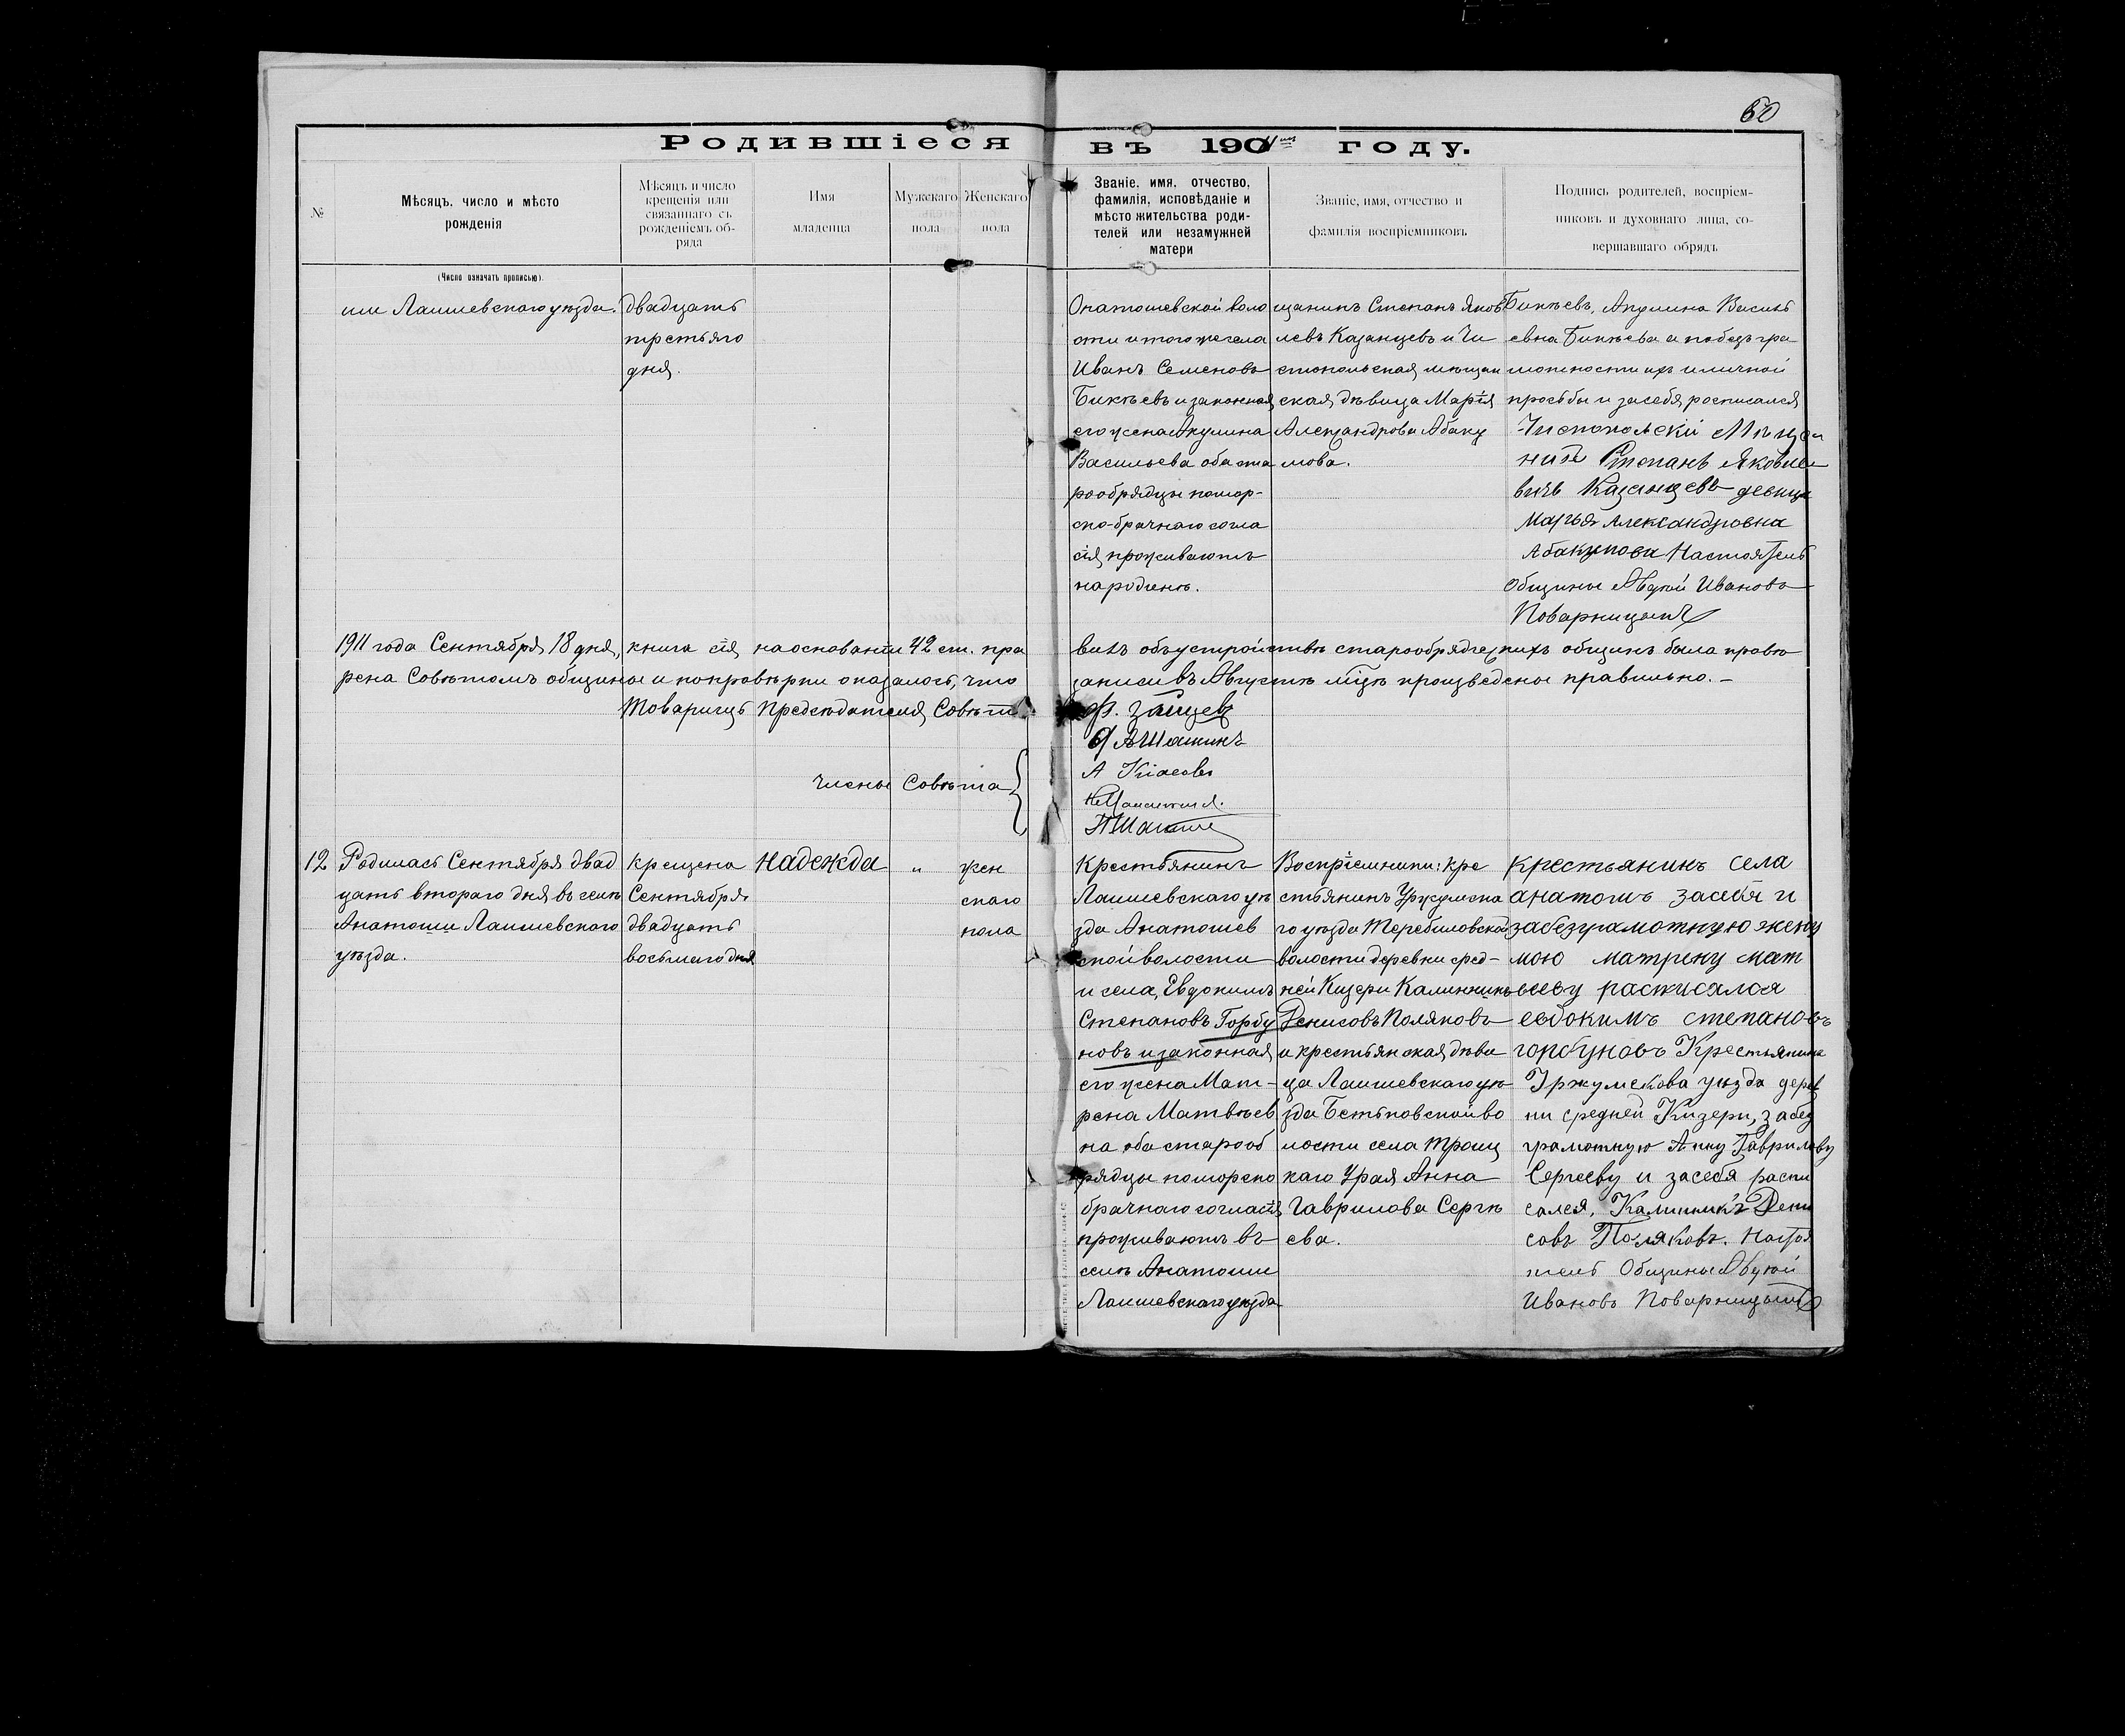 60
Родившіеся въ 1911 году.
№
Мѣсяцъ, число и мѣсто
рожденія
Мѣсяцъ и число
крещенія или
связаннаго съ
рожденіемъ об-
ряда
Имя
младенца
Мужскаго
пола
Женскаго
пола
Званіе, имя, отчество,
фамилія, исповѣданіе и
мѣсто жительства роди-
телей или незамужней
матери
Званіе, имя, отчество и
фамилія воспріемниковъ
Подпись родителей, воспріем-
никовъ и духовнаго лица, со-
вершавшаго обрядъ
(Число означать прописью).
ши Лаишевскаго уѣзда.
двадцать
третьяго
дня.
воло
сти и того же села
Иванъ Семеновъ
Бикѣевъ и законная
его жена Акулина
Васильева оба ста
рообрядцы помор-
ско-брачнаго согла
сія проживаютъ
на родинѣ.
щанинъ Степанъ Яков
левъ Казанцевъ и Чи
стопольская мѣщан
ская дѣвица Марія
Александрова Абаку
мова.
Бикѣевъ, Акулина Василь
евна Бикѣева а по безгра
мотности ихъ и личной
просьбы и за себя росписался
Чистопольскій Мѣща
нинъ Степанъ Яковле
вичъ Казанцевъ девица
Марья Александровна
Абакумова Настоятель
Общины Авдей Ивановъ
Поварницынъ
1911 года Сентября 18 дня, книга сія на основаніи 42 ст. пра
вилъ объ устройствѣ старообрядческихъ общинъ была провѣ
рена Совѣтомъ общины и по провѣрки оказалось, что
записи въ Августѣ мцѣ произведены правильно. –
Товарищъ Предсѣдателя Совѣта
Ф. Зайцев
Члены Совѣта
12
Родилась Сентября двад
цать втораго дня въ селѣ
Анатоши Лаишевскаго
уѣзда.
крещена
Сентября
двадцать
восьмаго дня
Надежда
"
жен
скаго
пола
Крестьянинъ
Лаишевскаго уѣ
зда Анатошев
ской волости
и села, Евдокимъ
Степановъ Горбу
новъ и законная
его жена Мат-
рена Матвѣев
на оба старооб
рядцы поморско
брачнаго согласія
проживаютъ въ
селѣ Анатоши
Лаишевскаго уѣзда
Воспріемники: кре
стьянинъ Уржумска
го уѣзда Теребиловской
волости деревни сред-
ней Кизери Калинникъ
Денисовъ Поляковъ
и крестьянская дѣви
ца Лаишевскаго уѣ
зда Бетьковской во
лости села Троиц
каго Урая Анна
Гаврилова Сергѣ
ева.
крестьянинъ села
анатошъ засебя и
забезграмотную жену
мою матрену мат
вееву расписался
евдокимъ степановъ
горбуновъ Крестьянинъ
Уржумскова уѣзда дерев
ни средней Кизери, забез
грамотную Анну Гаврилову
Сергееву и засебя распи
сался, Калинникъ Дени
совъ Поляковъ. Настоя
тель Общины Авдей
Ивановъ Поварницынъ